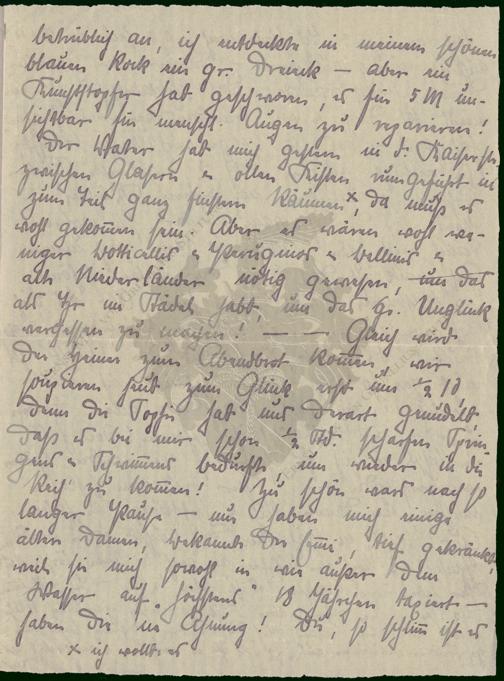 betrüblich an, ich entdeckte in meinem schönen
blauen Rock ein gr. Dreieck – aber ein
Kunststopfer hat geschworen, es für 5 M un-
sichtbar für menschl. Augen zu reparieren!
Der Vater hat mich gestern in d. Kaiserstr.
zwischen Gläsern u. ollen Kisten rumgeführt in
zum Teil ganz finstern Räumen x, da muß es
wohl gekommen sein. Aber es wären wohl we-
niger Botticellis u Peruginos u Bellinis u
alte Niederländer nötig gewesen, um das
als Ihr im Städel habt, um das gr. Unglück
vergessen zu machen! – – – Gleich wird
der Heiner zum Abendbrot kommen, wir
soupieren heut zum Glück erst um ½ 10
denn die hat uns derart gemüdelt
daß es bei mir schon ½ Std. scharfen Sprin-
gens u Schwimmens bedurfte, um wieder in die
Reih' zu kommen! Zu schön wars nach so
langer Pause – nur haben mich einige
ältere Damen, Bekannte der Emmi, tief gekränkt,
weil sie mich sowohl in wie außer dem
Wasser auf "höchstens" 18 Jährchen taxiert –
haben die 'ne Ahnung! Du, so schlimm ist es
x ich wollte es